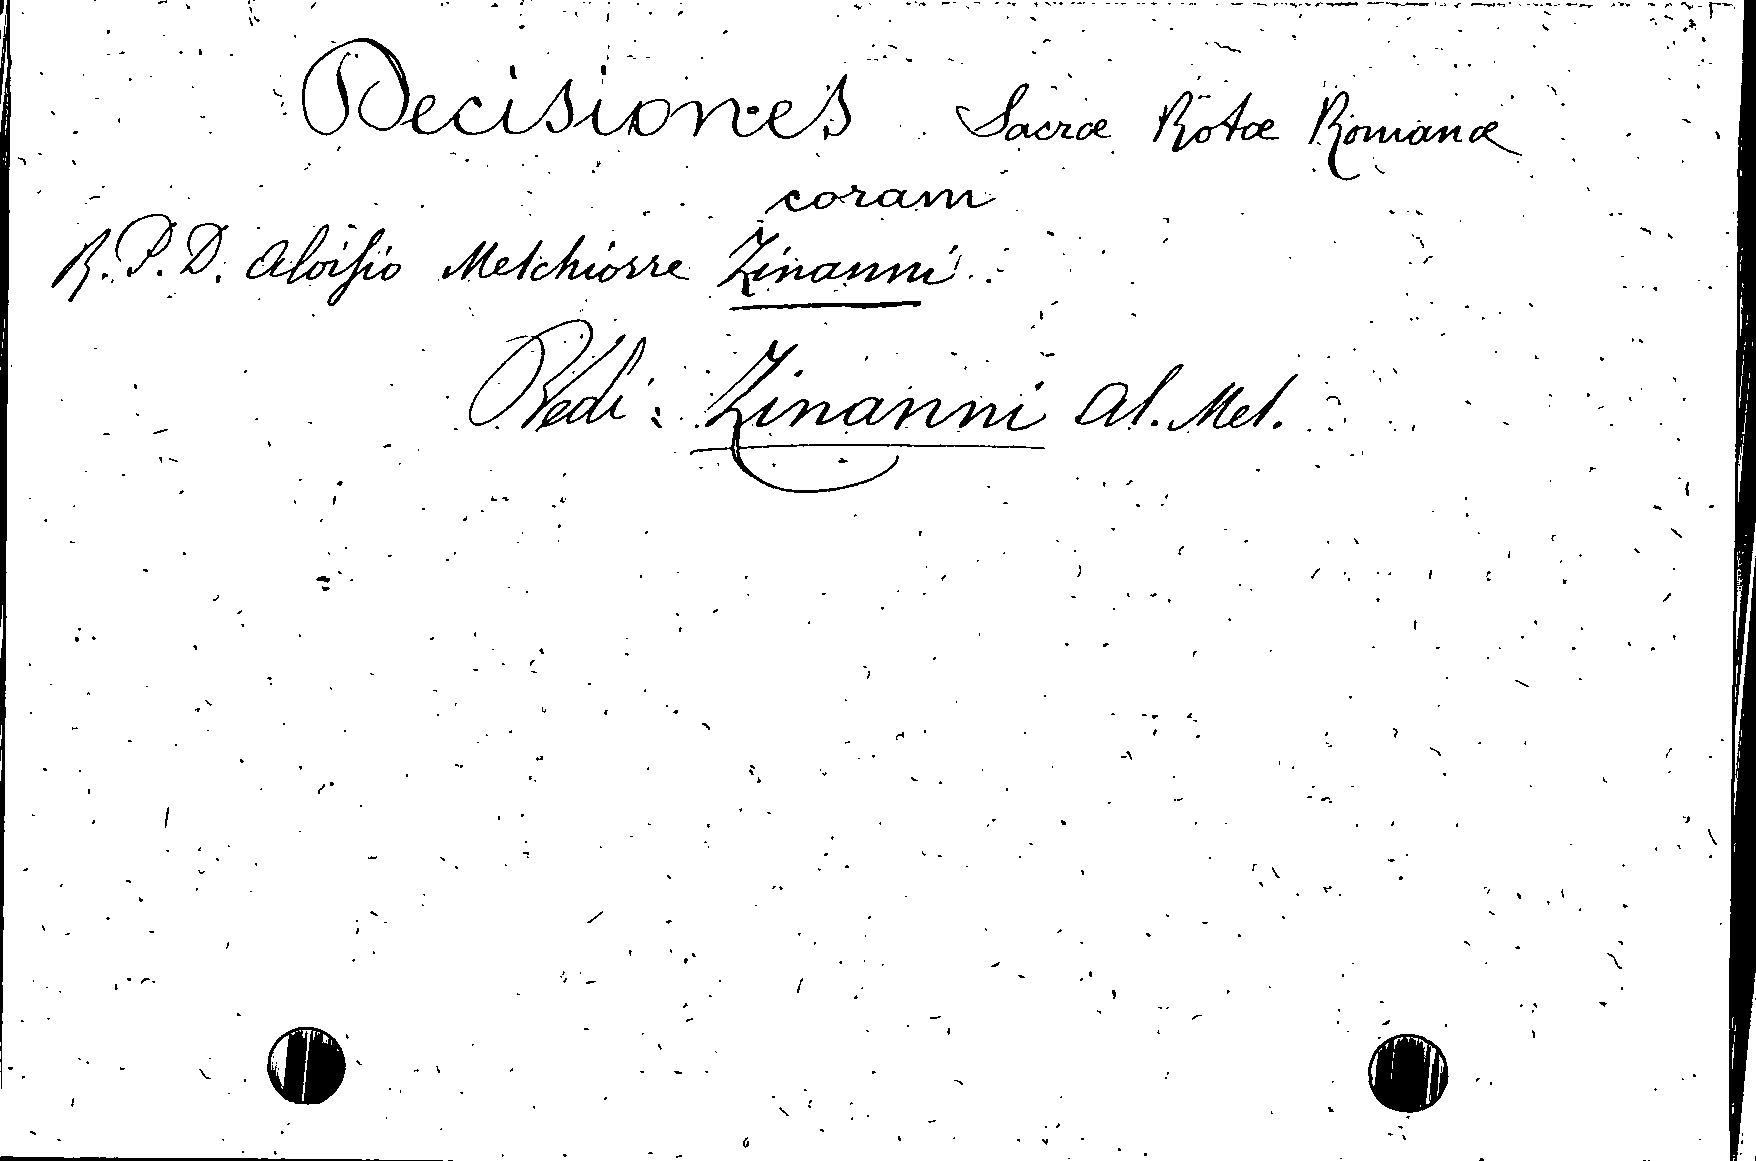 Decisiones Sacræ Rotæ Romanæ
coram
R. P. D. Aloisio Melchiorre Zinanni
Vedi: Zinanni Al. Mel.